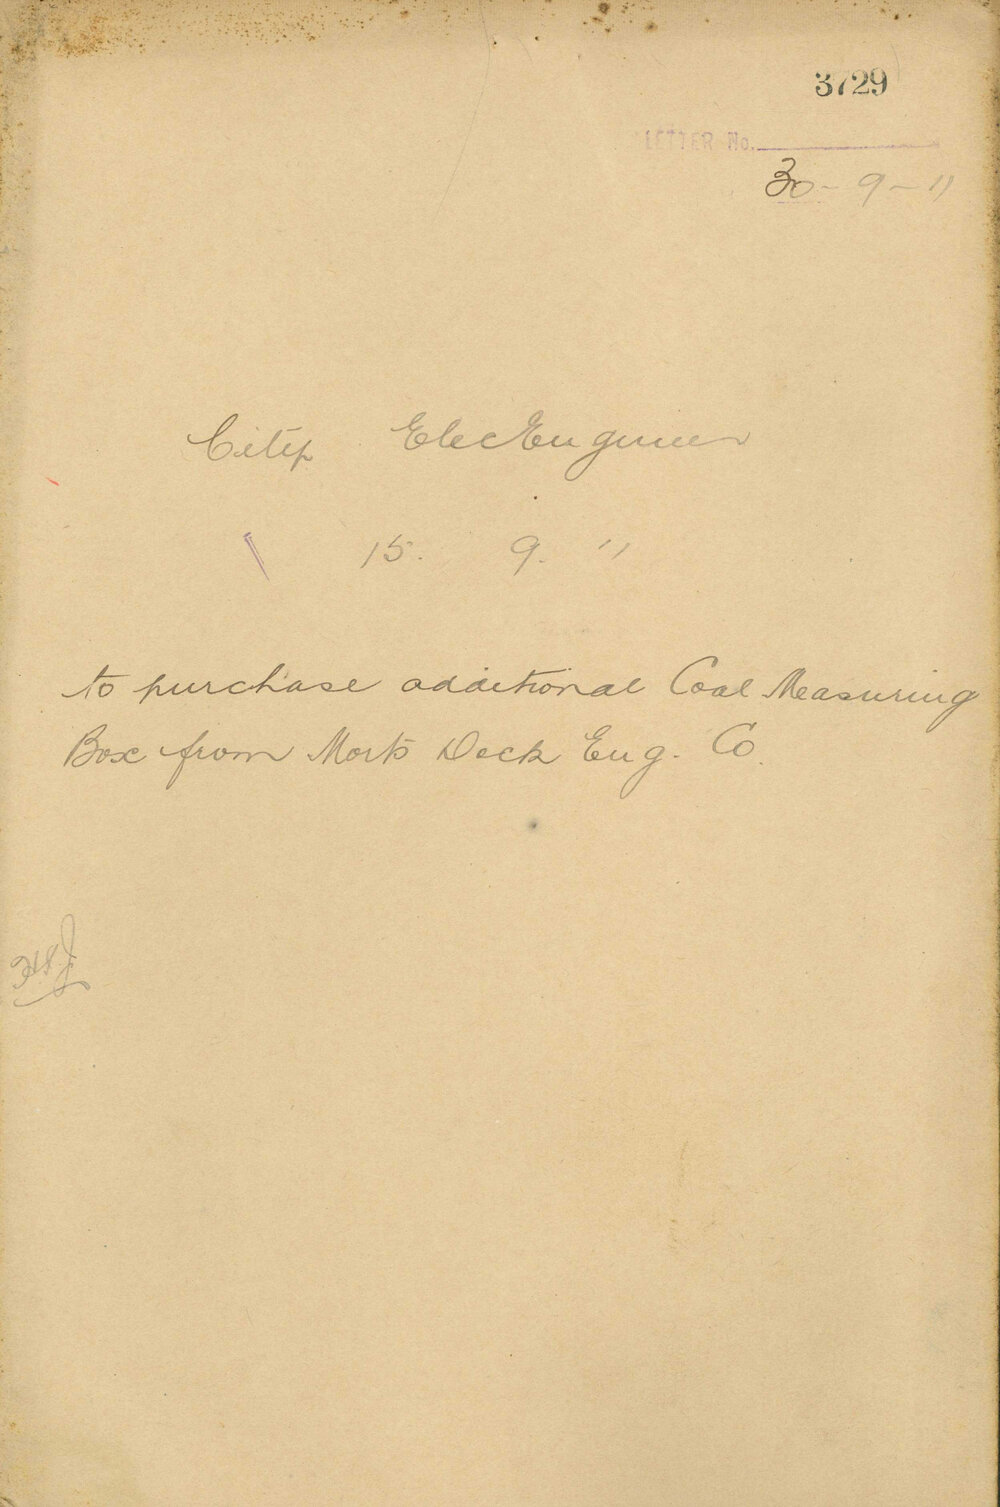 3729
LETTER No.
30-9-11
City Elec Engineer
15. 9. 11
to purchase additional Coal Measuring
Box from Morts Dock Eng. Co.